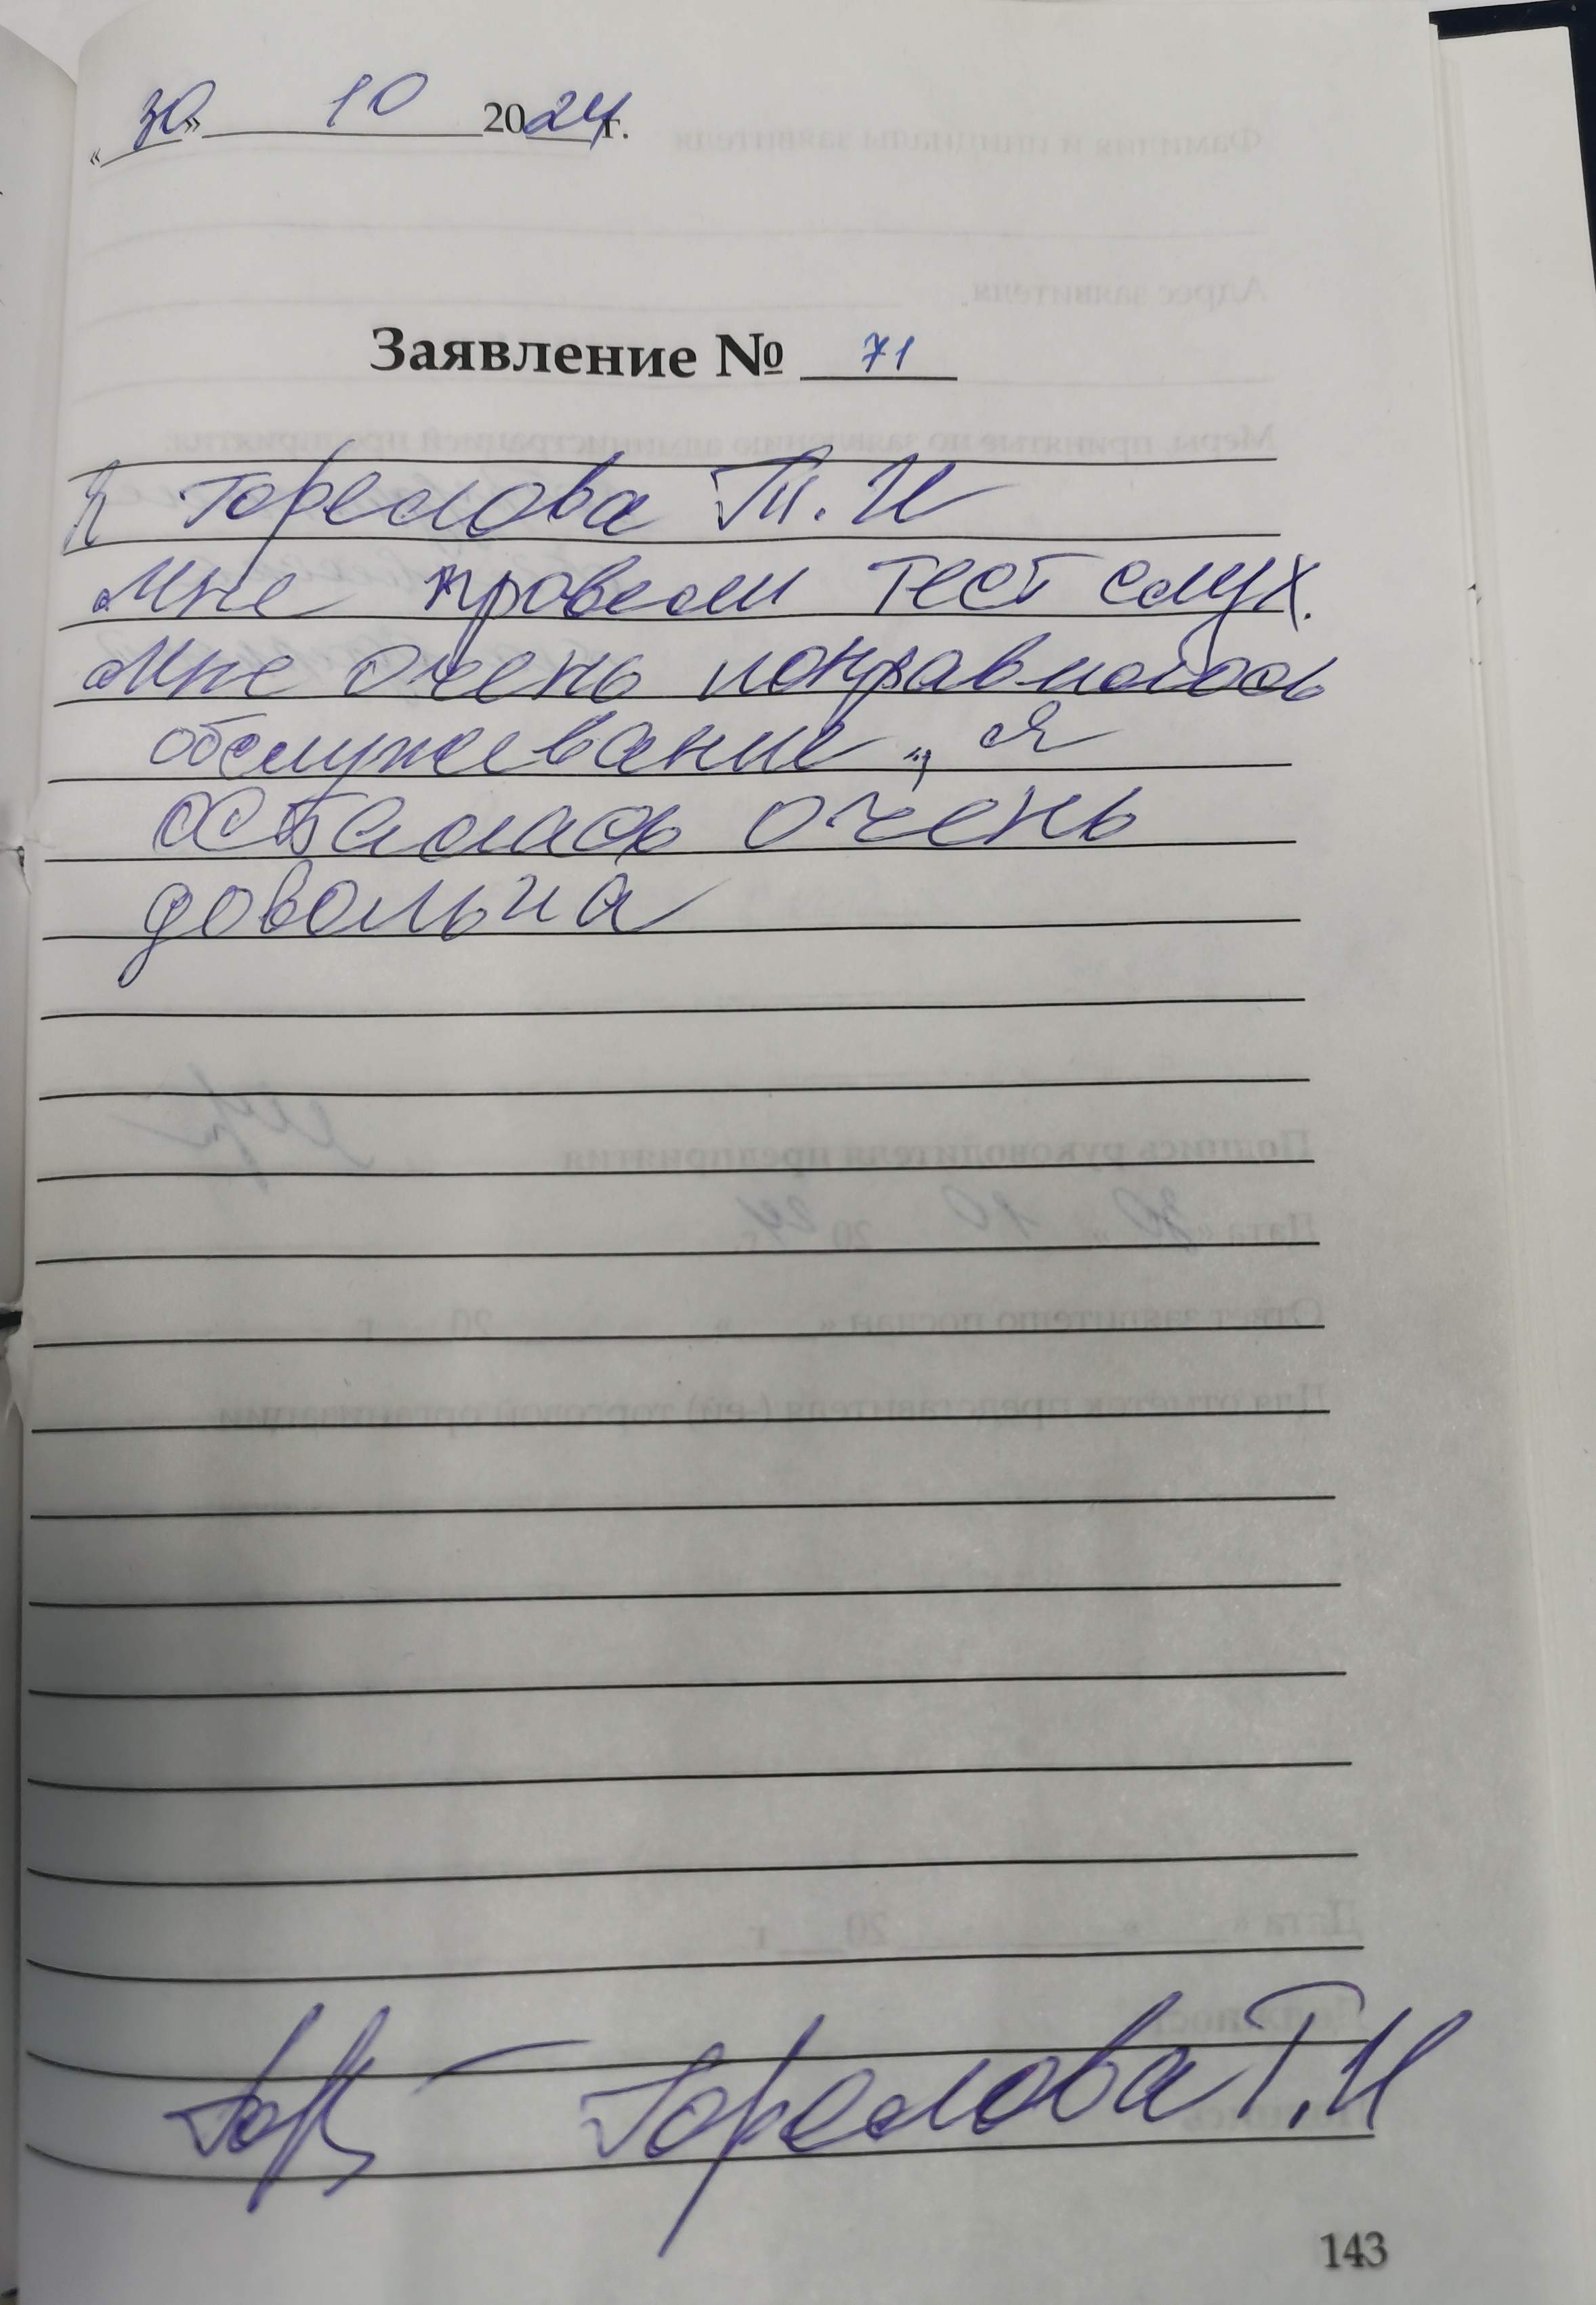 «30» 10 2024г.
Заявление № 71
Я Горелова Т.И
Мне провели тест слух.
Мне очень понравилось
обслуževание, я
осталась очень
довольна
Горелова Т.И
143